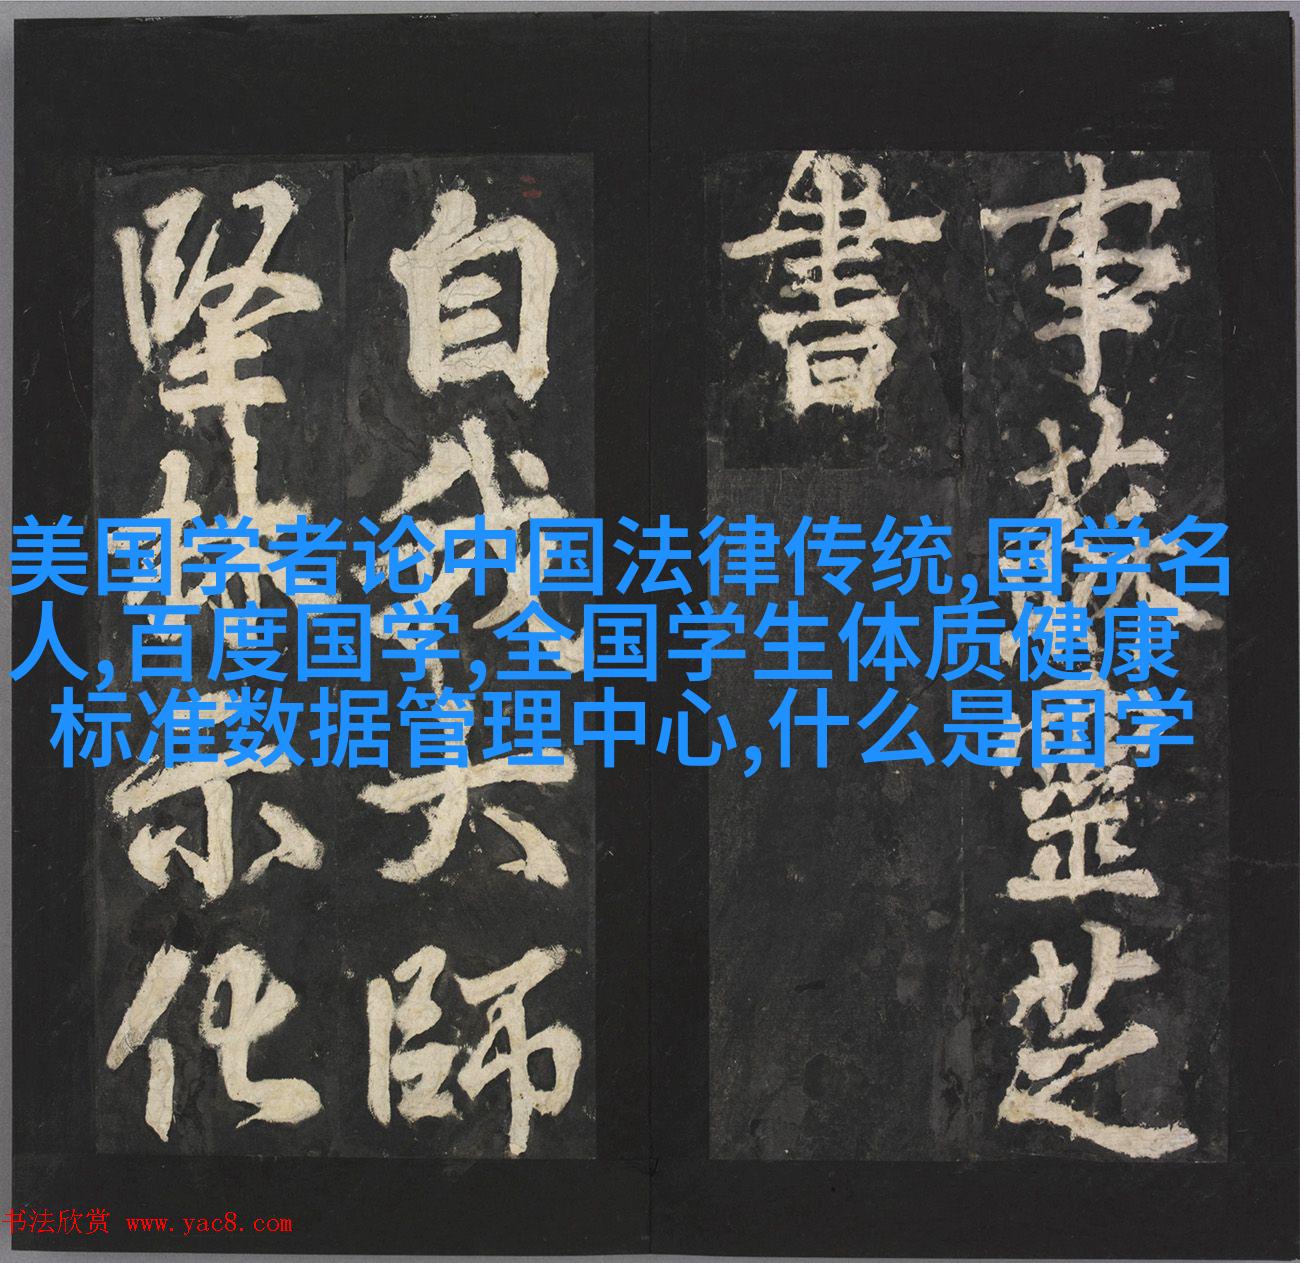 事靈芝
書
自我大師
堅林示化
美国学者论中国法律传统,国学名
人,百度国学,全国学生体质健康
标准数据管理中心,什么是国学
书法欣赏 www.yac8.com